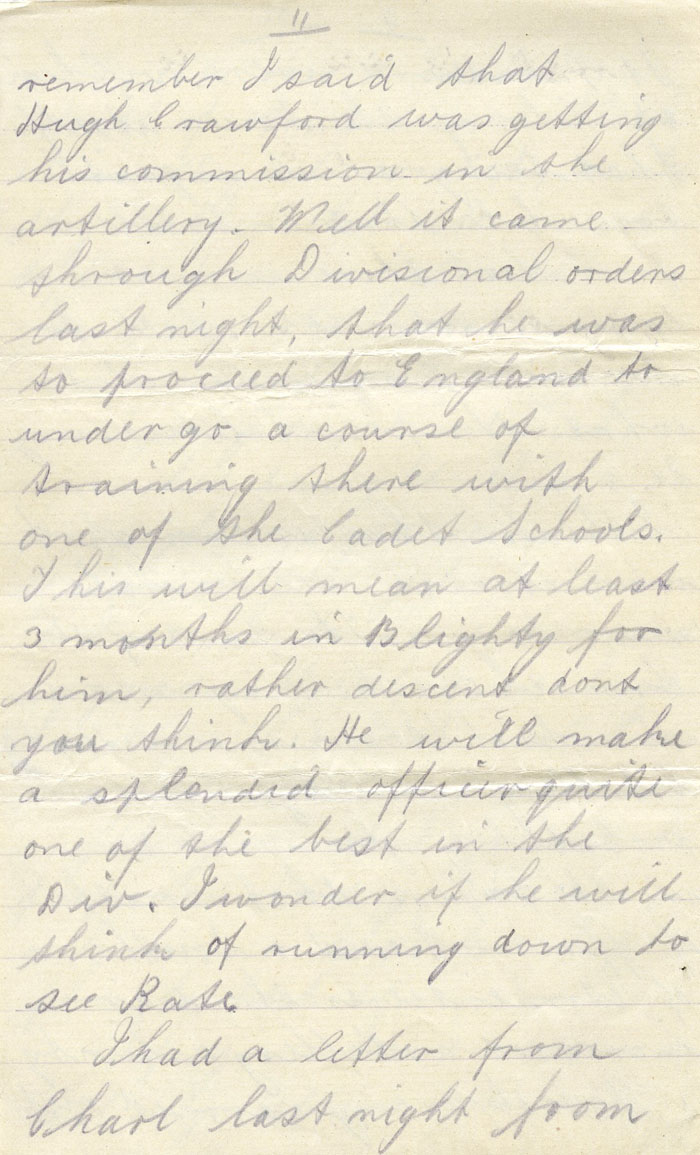 11
remember I said that
Hugh Crawford was getting
his commission in the
artillery. Well it came
through Divisional orders
last night, that he was
to proceed to England to
undergo a course of
training there with
one of the Cadet Schools.
This will mean at least
3 months in Blighty for
him, rather descent dont
you think. He will make
a splendid officer quite
one of the best in the
Div. I wonder if he will
think of running down to
see Kate.
I had a letter from
Charl last night from